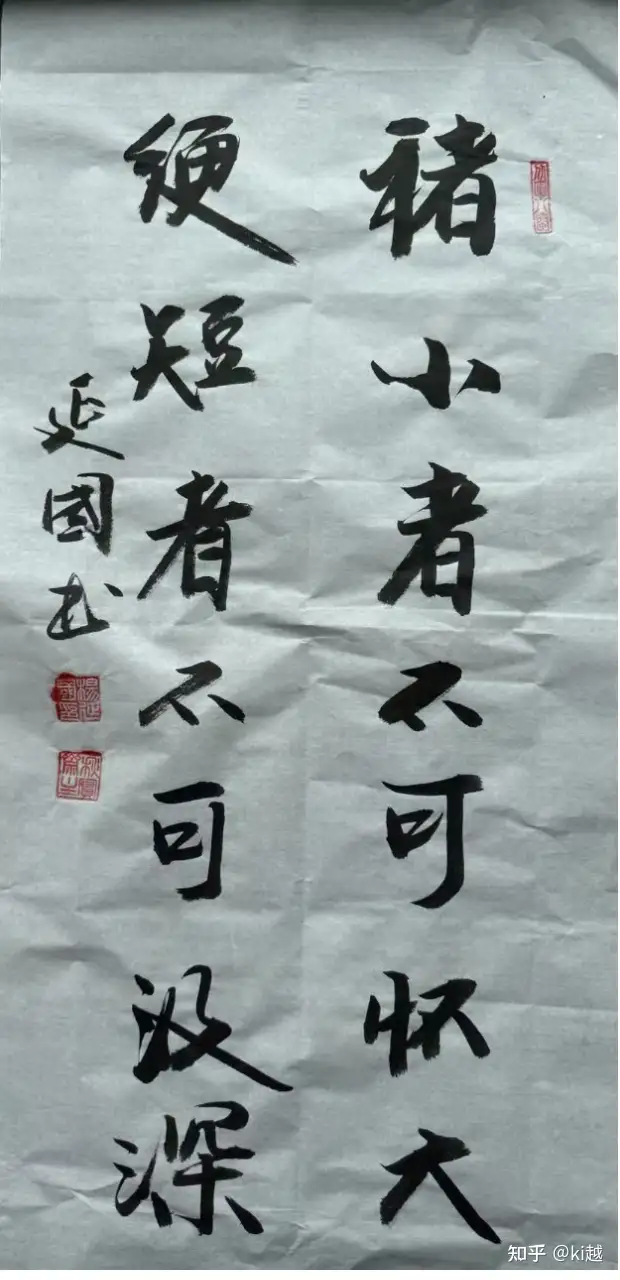 褚小者不可怀大
绠短者不可汲深
延國书
知乎 @ki越